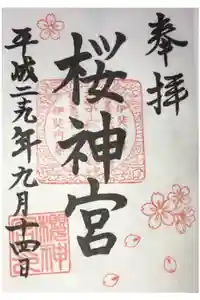 奉拝
桜神宮
平成二十九年九月十四日